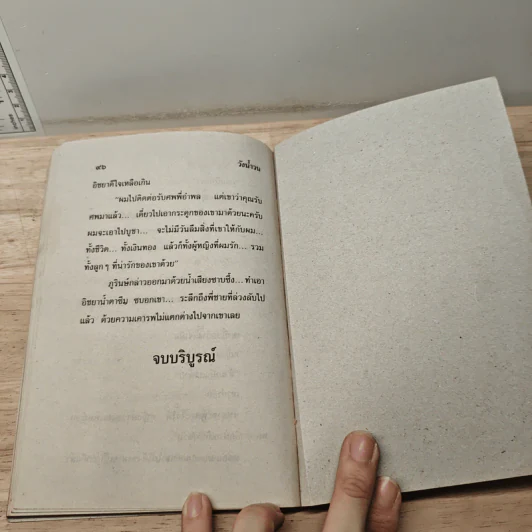 ๙๖ วังน้ำวน
อิชยาดีใจเหลือเกิน
"ผมไปติดต่อรับศพพี่อำพล... แต่เขาว่าคุณรับ
ศพมาแล้ว... เดี๋ยวไปเอากระดูกของเขามาด้วยนะครับ
ผมจะเอาไปบูชา... จะไม่มีวันลืมสิ่งที่เขาให้กับผม...
ทั้งชีวิต... ทั้งเงินทอง แล้วก็ทั้งผู้หญิงที่ผมรัก... รวม
ทั้งลูกๆ ที่น่ารักของเขาด้วย"
ภูรินษ์กล่าวออกมาด้วยน้ำเสียงซาบซึ้ง... ทำเอา
อิชยาน้ำตาซึม ซบอกเขา... ระลึกถึงพี่ชายที่ล่วงลับไป
แล้ว ด้วยความเคารพไม่แตกต่างไปจากเขาเลย
จบบริบูรณ์